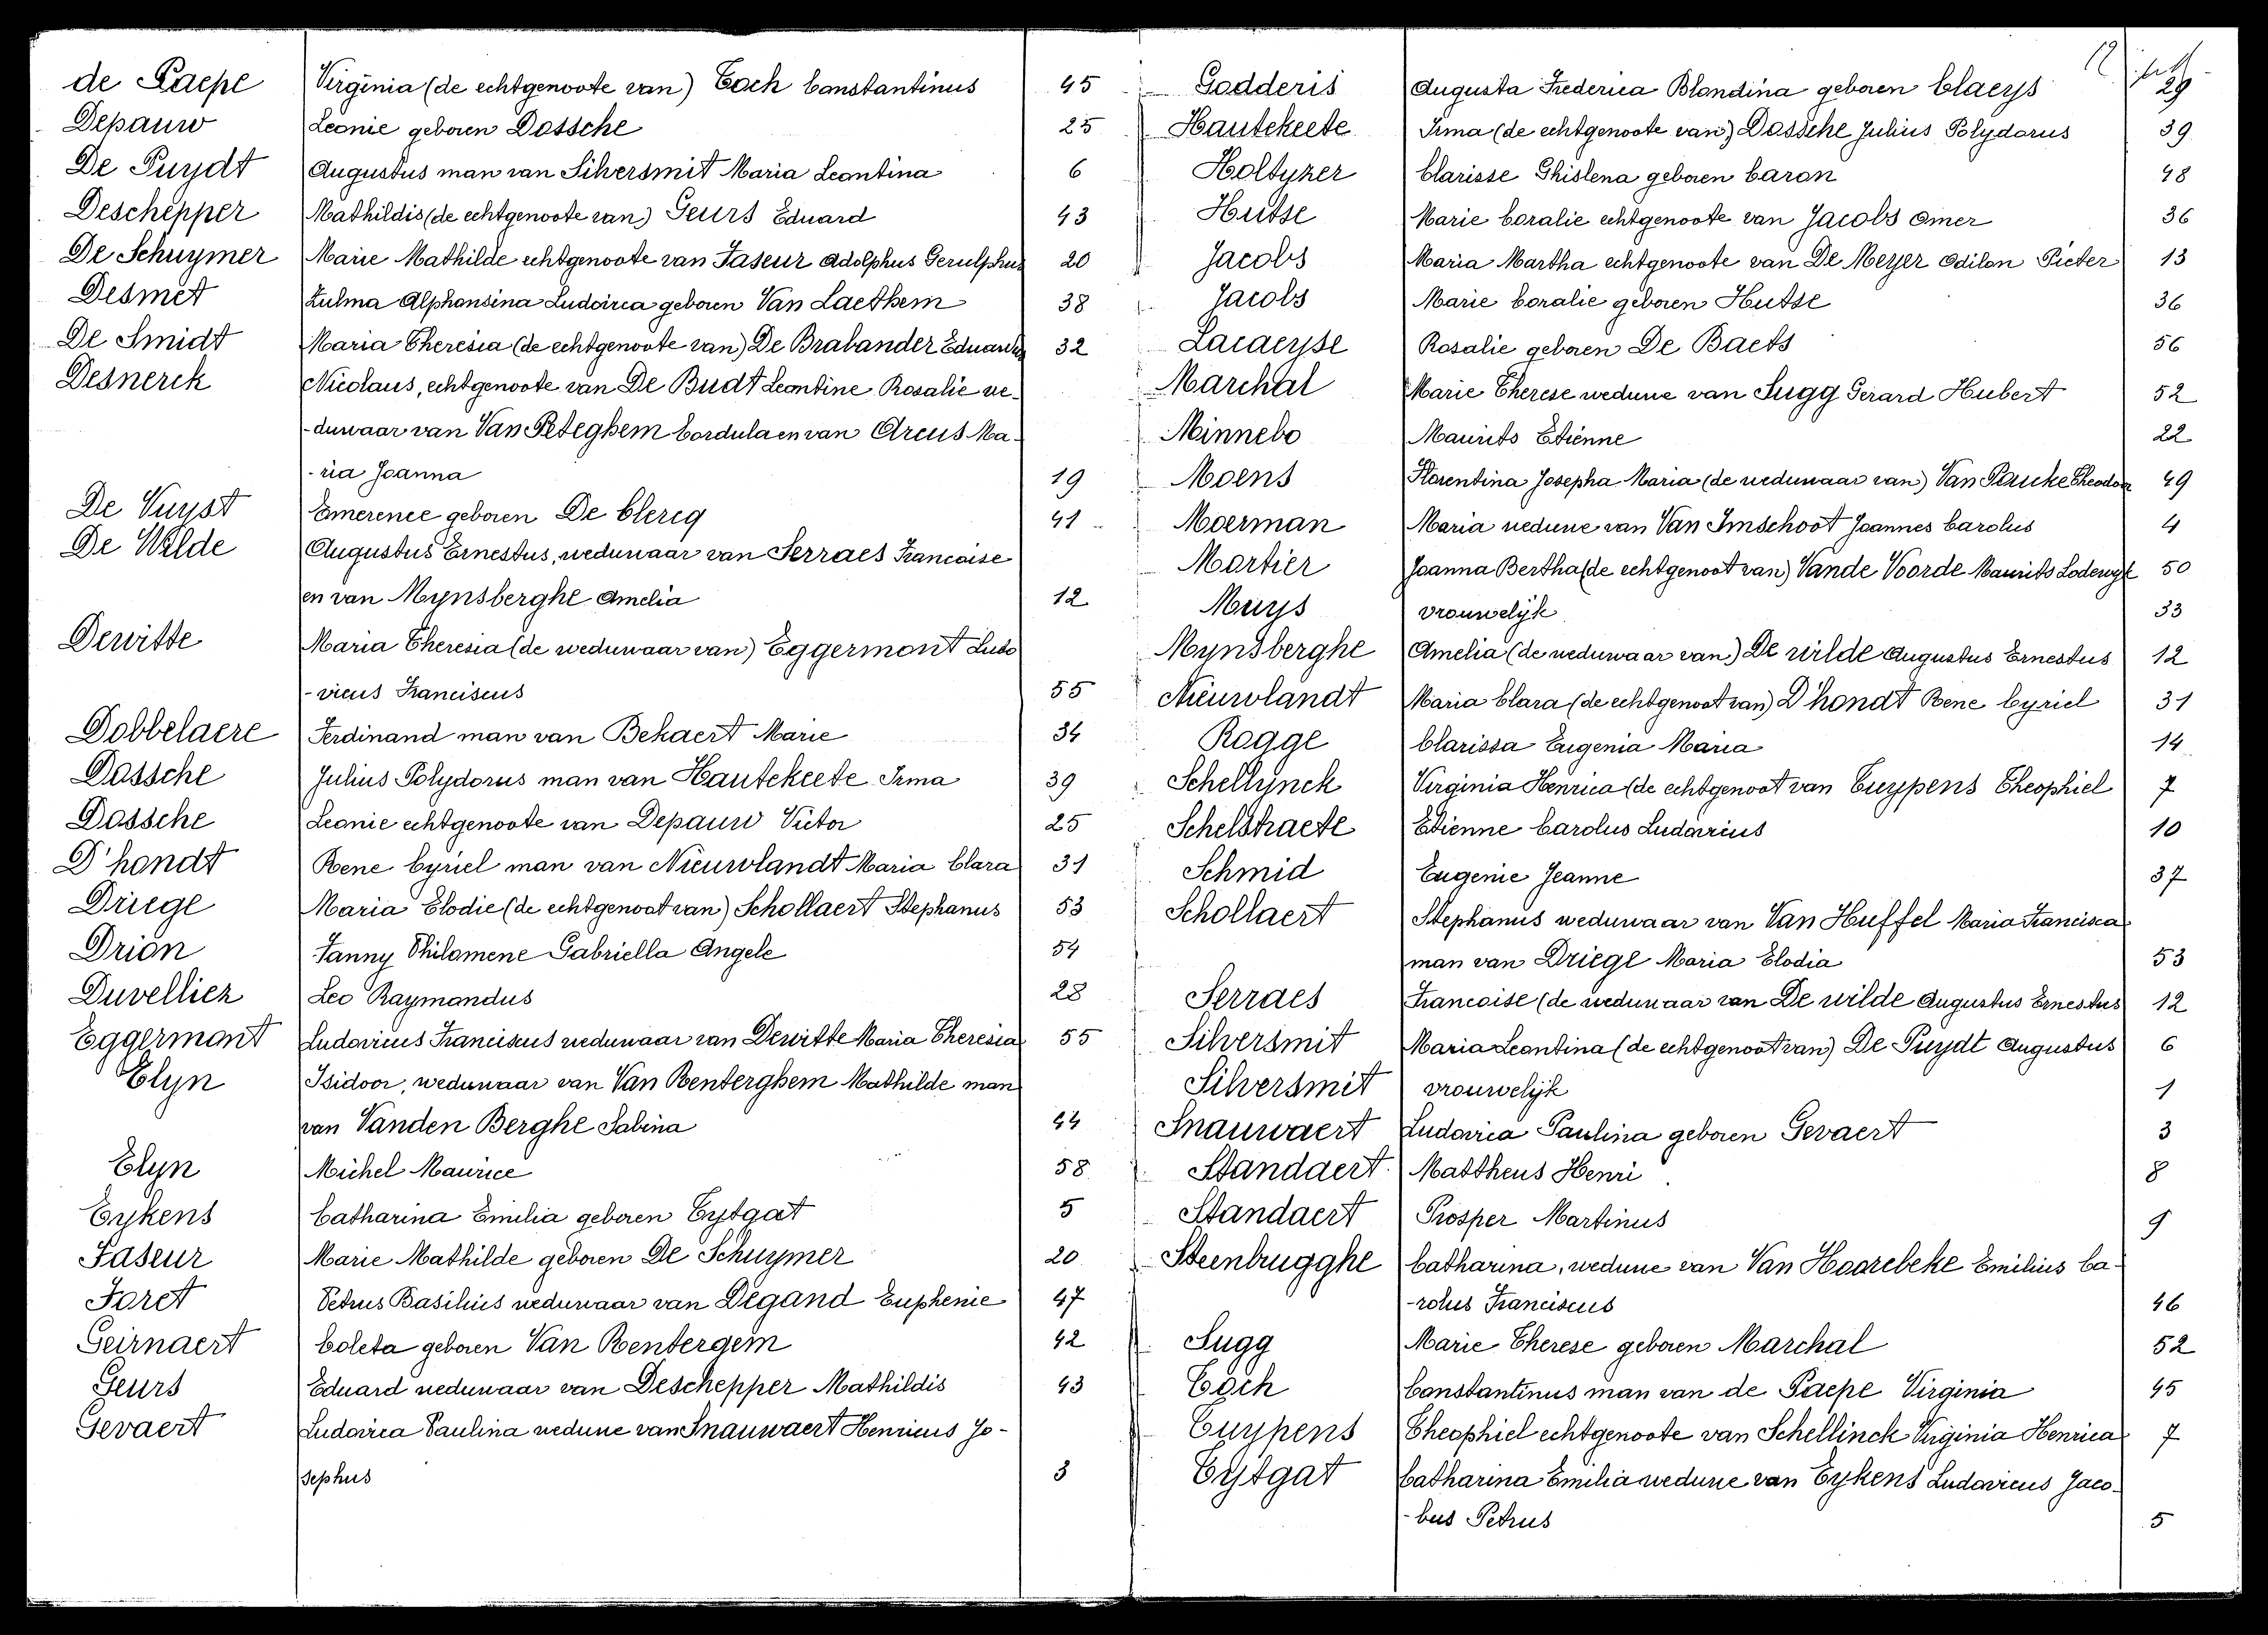 de Paepe Virginia (de echtgenoote van) Toch Constantinus 45
Depauw Leonie geboren Dossche 25
De Puydt Augustus man van Silversmit Maria Leontina 6
Deschepper Mathildis (de echtgenoote van) Geurs Eduard 43
De Schuymer Marie Mathilde echtgenoote van Faseur Adolphus Gerulphus 20
Desmet Zulma Alphonsina Ludovica geboren Van Laethem 38
De Smidt Maria Theresia (de echtgenoote van) De Brabander Eduardus 32
Desnerck Nicolaus, echtgenoote van De Budt Leontine Rosalie we-
-duwaar van Van Peteghem Cordula en van Arcus Ma-
-ria Joanna 19
De Vuyst Emerence geboren De Clercq 41
De Wilde Augustus Ernestus, weduwaar van Serraes Francoise
en van Mynsberghe Amelia 12
Dewitte Maria Theresia (de weduwaar van) Eggermont Ludo
-vicus Franciscus 55
Dobbelaere Ferdinand man van Bekaert Marie 34
Dossche Julius Polydorus man van Hautekeete Irma 39
Dossche Leonie echtgenoote van Depauw Victor 25
D'hondt Rene Cyriel man van Nieuwlandt Maria Clara 31
Driege Maria Elodie (de echtgenoot van) Schollaert Stephanus 53
Drion Fanny Philomene Gabriella Angele 54
Duvellier Leo Raymondus 28
Eggermont Ludovicus Franciscus weduwaar van Dewitte Maria Theresia 55
Elyn Isidoor, weduwaar van Van Renterghem Mathilde man
van Vanden Berghe Sabina 44
Elyn Michel Maurice 58
Eykens Catharina Emilia geboren Tytgat 5
Faseur Marie Mathilde geboren De Schuymer 20
Foret Petrus Basilius weduwaar van Degand Euphenie 47
Geirnaert Coleta geboren Van Rentergem 42
Geurs Eduard weduwaar van Deschepper Mathildis 43
Gevaert Ludovica Paulina weduwe van Snauwaert Henricus Jo-
sephus 3
Godderis Augusta Frederica Blondina geboren Claeys 29
Hautekeete Irma (de echtgenoote van) Dossche Julius Polydorus 39
Holtyzer Clarisse Ghislena geboren Caron 48
Hutse Marie Coralie echtgenoote van Jacobs Omer 36
Jacobs Maria Martha echtgenoote van De Meyer Odilon Pieter 13
Jacobs Marie Coralie geboren Hutse 36
Lacaeyse Rosalie geboren De Baets 56
Marchal Marie Therese weduwe van Sugg Gerard Hubert 52
Minnebo Maurits Etienne 22
Moens Florentina Josepha Maria (de weduwaar van) Van Peucke Theodoor 49
Moerman Maria weduwe van Van Imschoot Joannes Carolus 4
Mortier Joanna Bertha (de echtgenoot van) Vande Voorde Maurits Lodewyk 50
Muys vrouwelijk 33
Mynsberghe Amelia (de weduwaar van) De wilde Augustus Ernestus 12
Nieuwlandt Maria Clara (de echtgenoot van) D'hondt Rene Cyriel 31
Rogge Clarissa Eugenia Maria 14
Schellynck Virginia Henrica (de echtgenoot van Tuypens Theophiel 7
Schelstraete Etienne Carolus Ludovicus 10
Schmid Eugenie Jeanne 37
Schollaert Stephanus weduwaar van Van Huffel Maria Francisca
man van Driege Maria Elodia 53
Serraes Francoise (de weduwaar van De wilde Augustus Ernestus 12
Silversmit Maria Leontina (de echtgenoot van) De Puydt Augustus 6
Silversmit vrouwelijk 1
Snauwaert Ludovica Paulina geboren Gevaert 3
Standaert Mattheus Henri 8
Standaert Prosper Martinus 9
Steenbrugghe Catharina, weduwe van Van Hoorebeke Emilius Ca-
-rolus Franciscus 46
Sugg Marie Therese geboren Marchal 52
Toch Constantinus man van de Paepe Virginia 45
Tuypens Theophiel echtgenoote van Schellinck Virginia Henrica 7
Tytgat Catharina Emilia weduwe van Eykens Ludovicus Jaco-
-bus Petrus 5